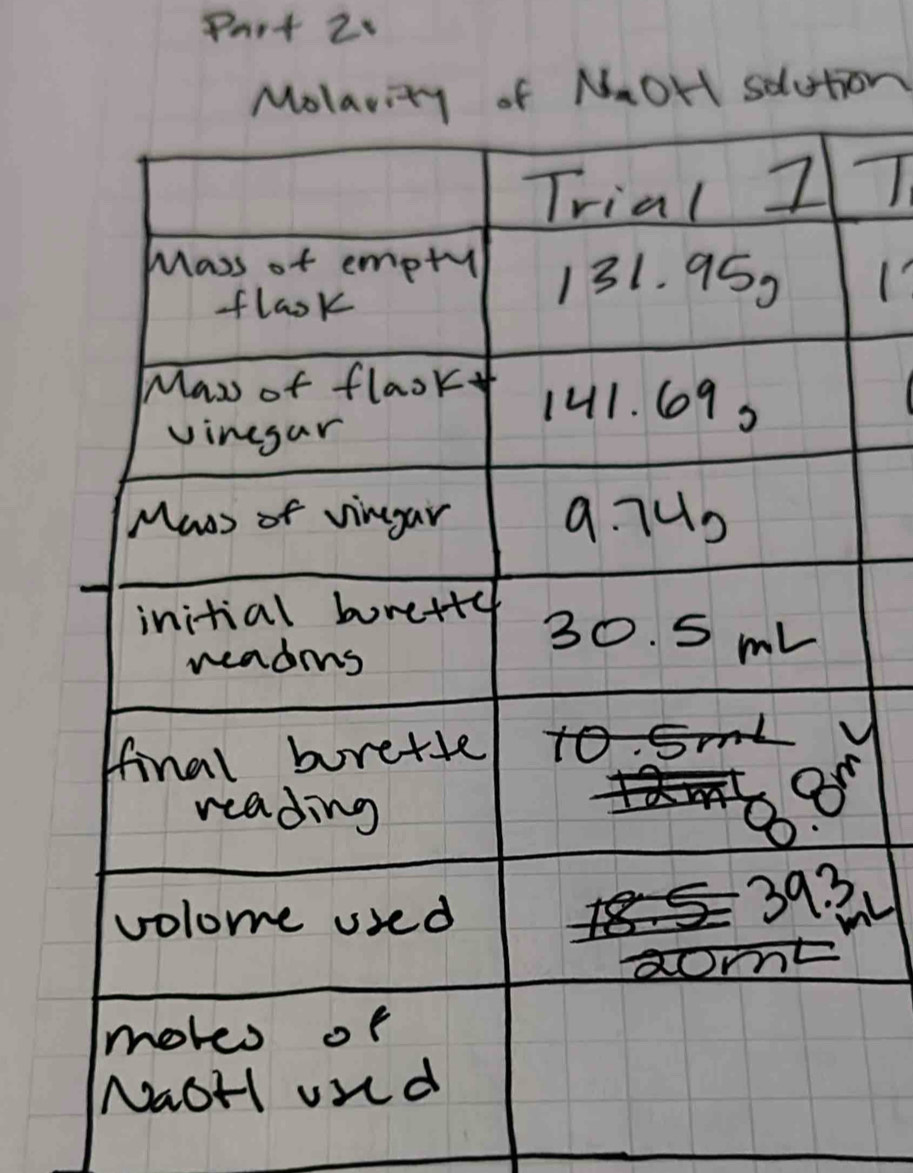 Part 2:
Molarity of NaOH solution
Trial 1
Mass of empty
flask
131.95g
Mass of flask +
vinegar
141.69g
Mass of vinegar
9.74g
initial burette
readings
30.5 mL
final burette
reading
10.5mL
12mL
8.8mL
volume used
18.5
39.3
mL
20mL
moles of
NaOH used